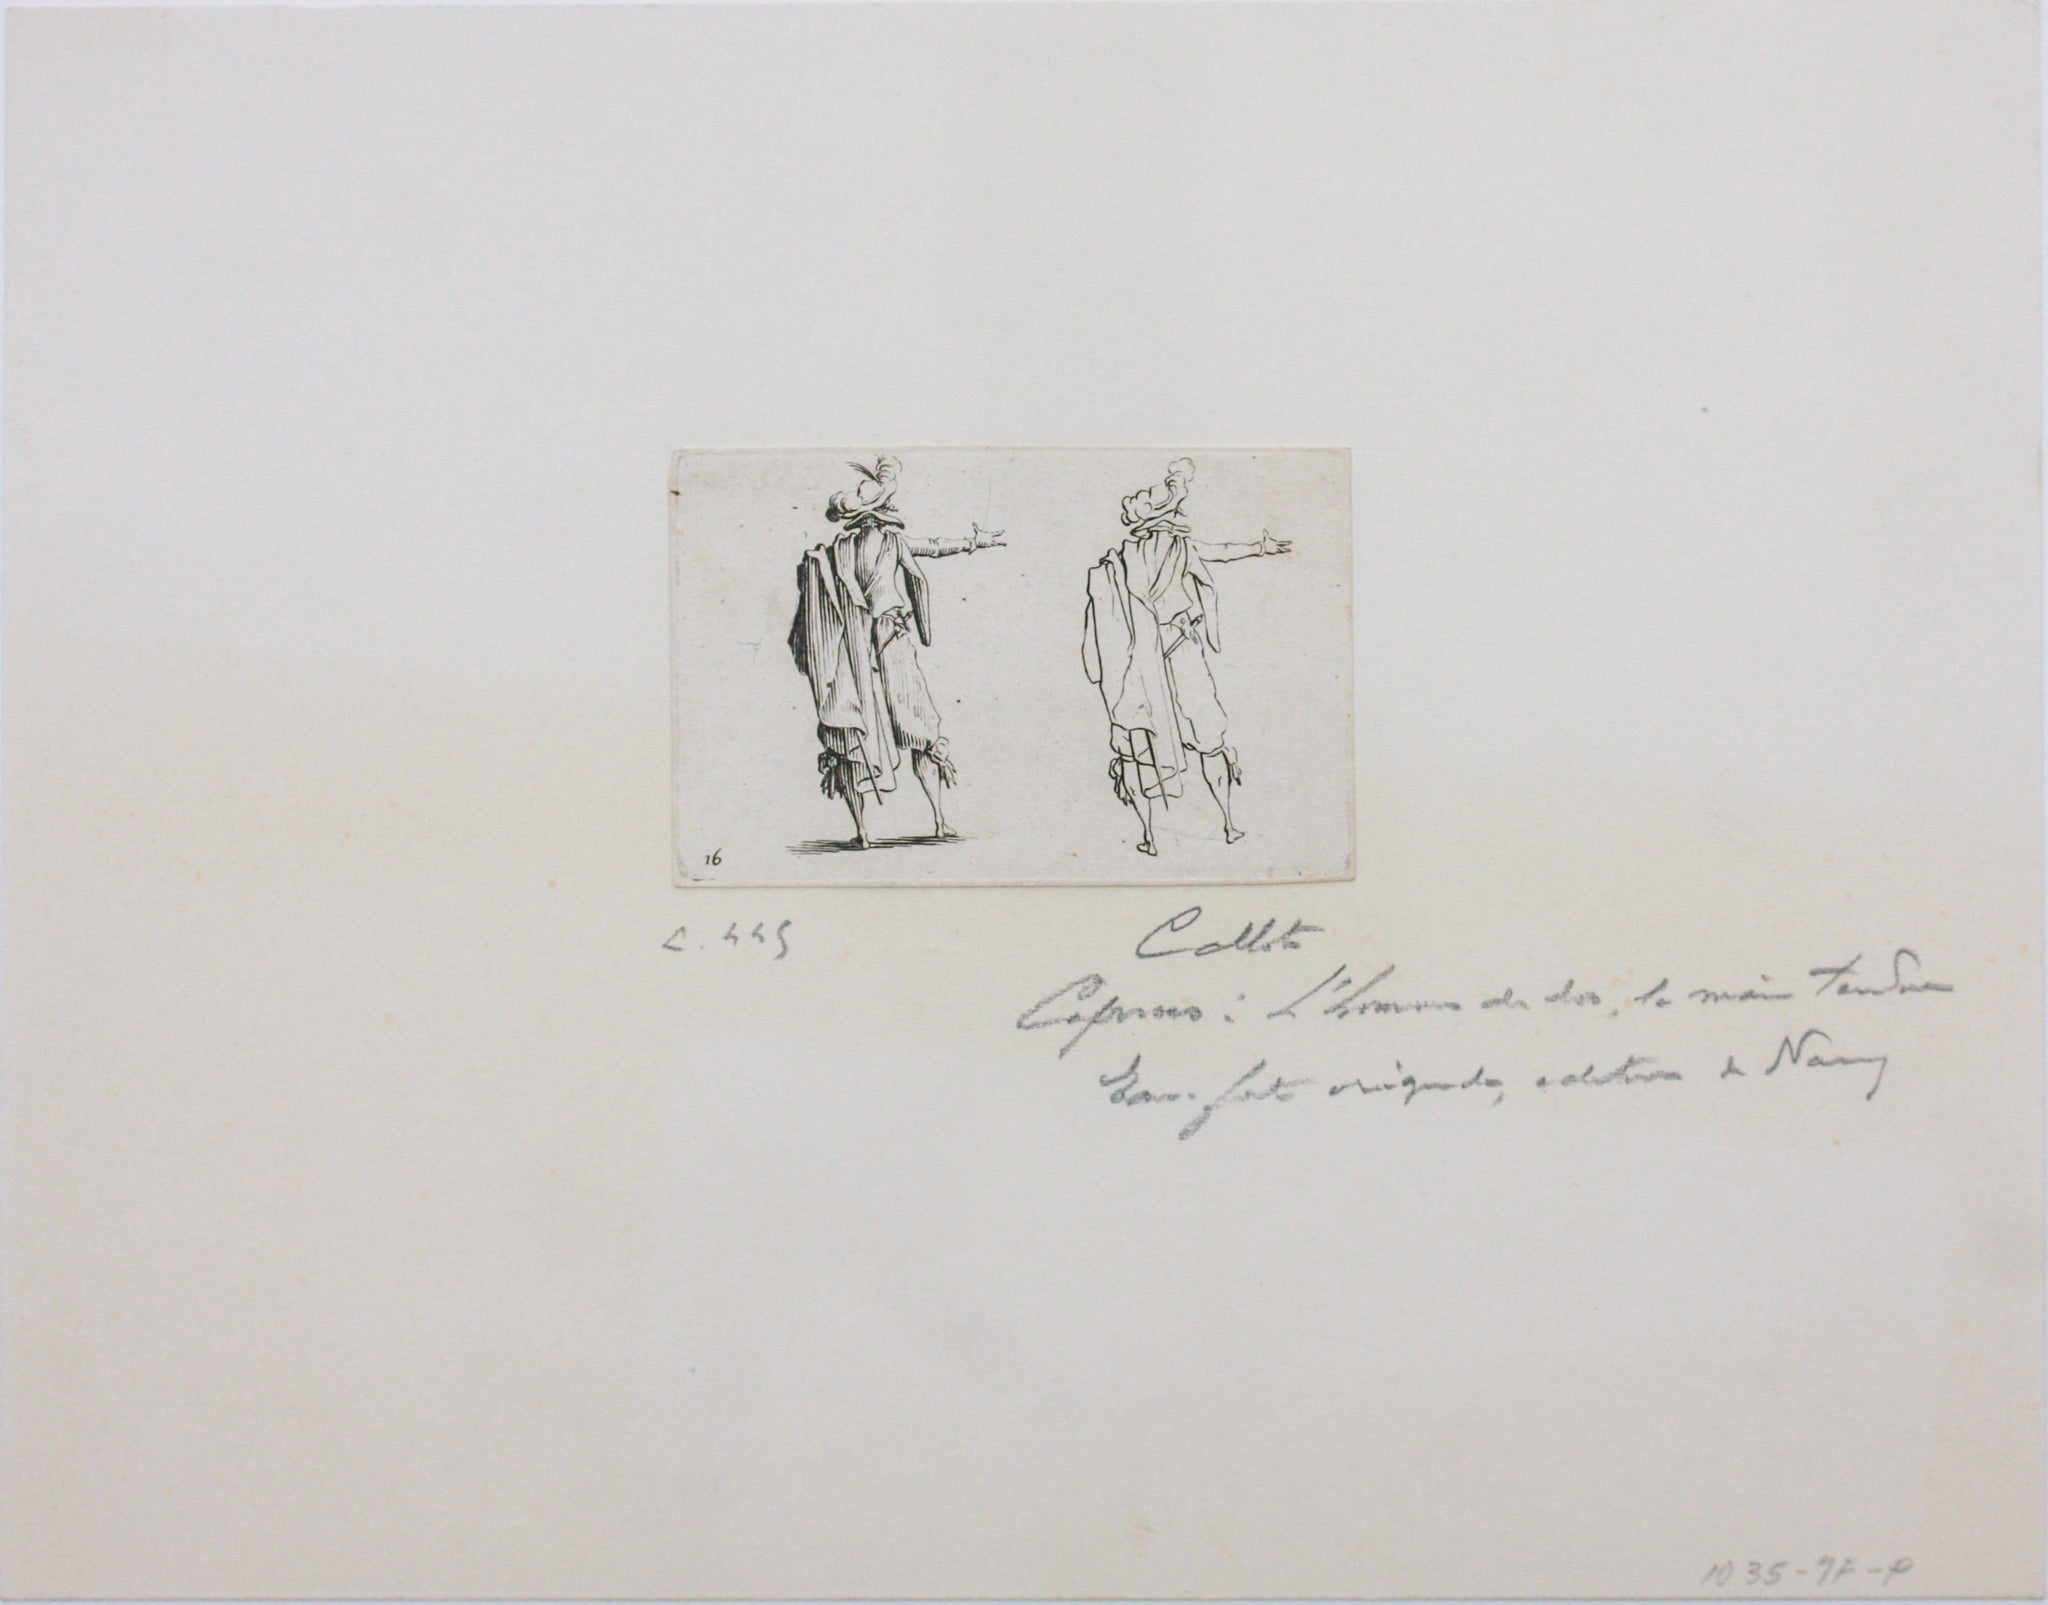 16
L. 445
Callot
Caprices : L'homme de dos, la main tendue
Eau-forte originale, édition de Nancy
1035-